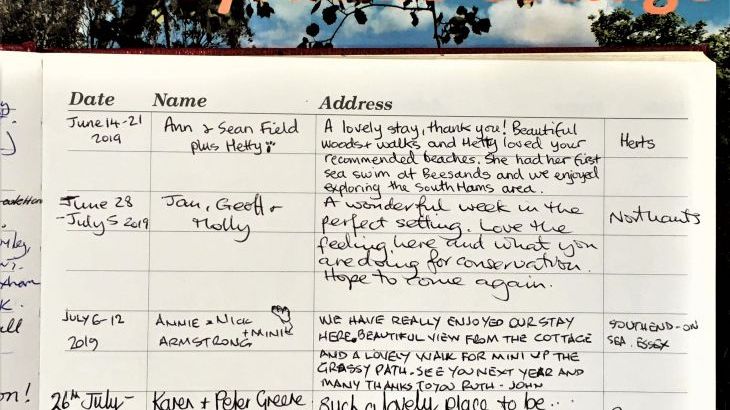 Date Name Address
June 14-21
2019
Ann & Sean Field
plus Hetty
A lovely stay, thank you! Beautiful
woods + walks and Hetty loved your
recommended beaches. She had her first
sea swim at Beesands and we enjoyed
exploring the South Hams area.
Herts
June 28
- July 5 2019
Jan, Geoff +
Molly
A wonderful week in the
perfect setting. Love the
feeling here and what you
are doing for conservation.
Hope to come again.
Northants
JULY 6-12
2019
ANNIE & NICK
+ MINI
ARMSTRONG
WE HAVE REALLY ENJOYED OUR STAY
HERE. BEAUTIFUL VIEW FROM THE COTTAGE
AND A LOVELY WALK FOR MINI UP THE
GRASSY PATH. SEE YOU NEXT YEAR AND
MANY THANKS TO YOU RUTH - JOHN
SOUTHEND-ON
SEA. ESSEX
26th July -
Karen + Peter Greene
Such a lovely place to be...